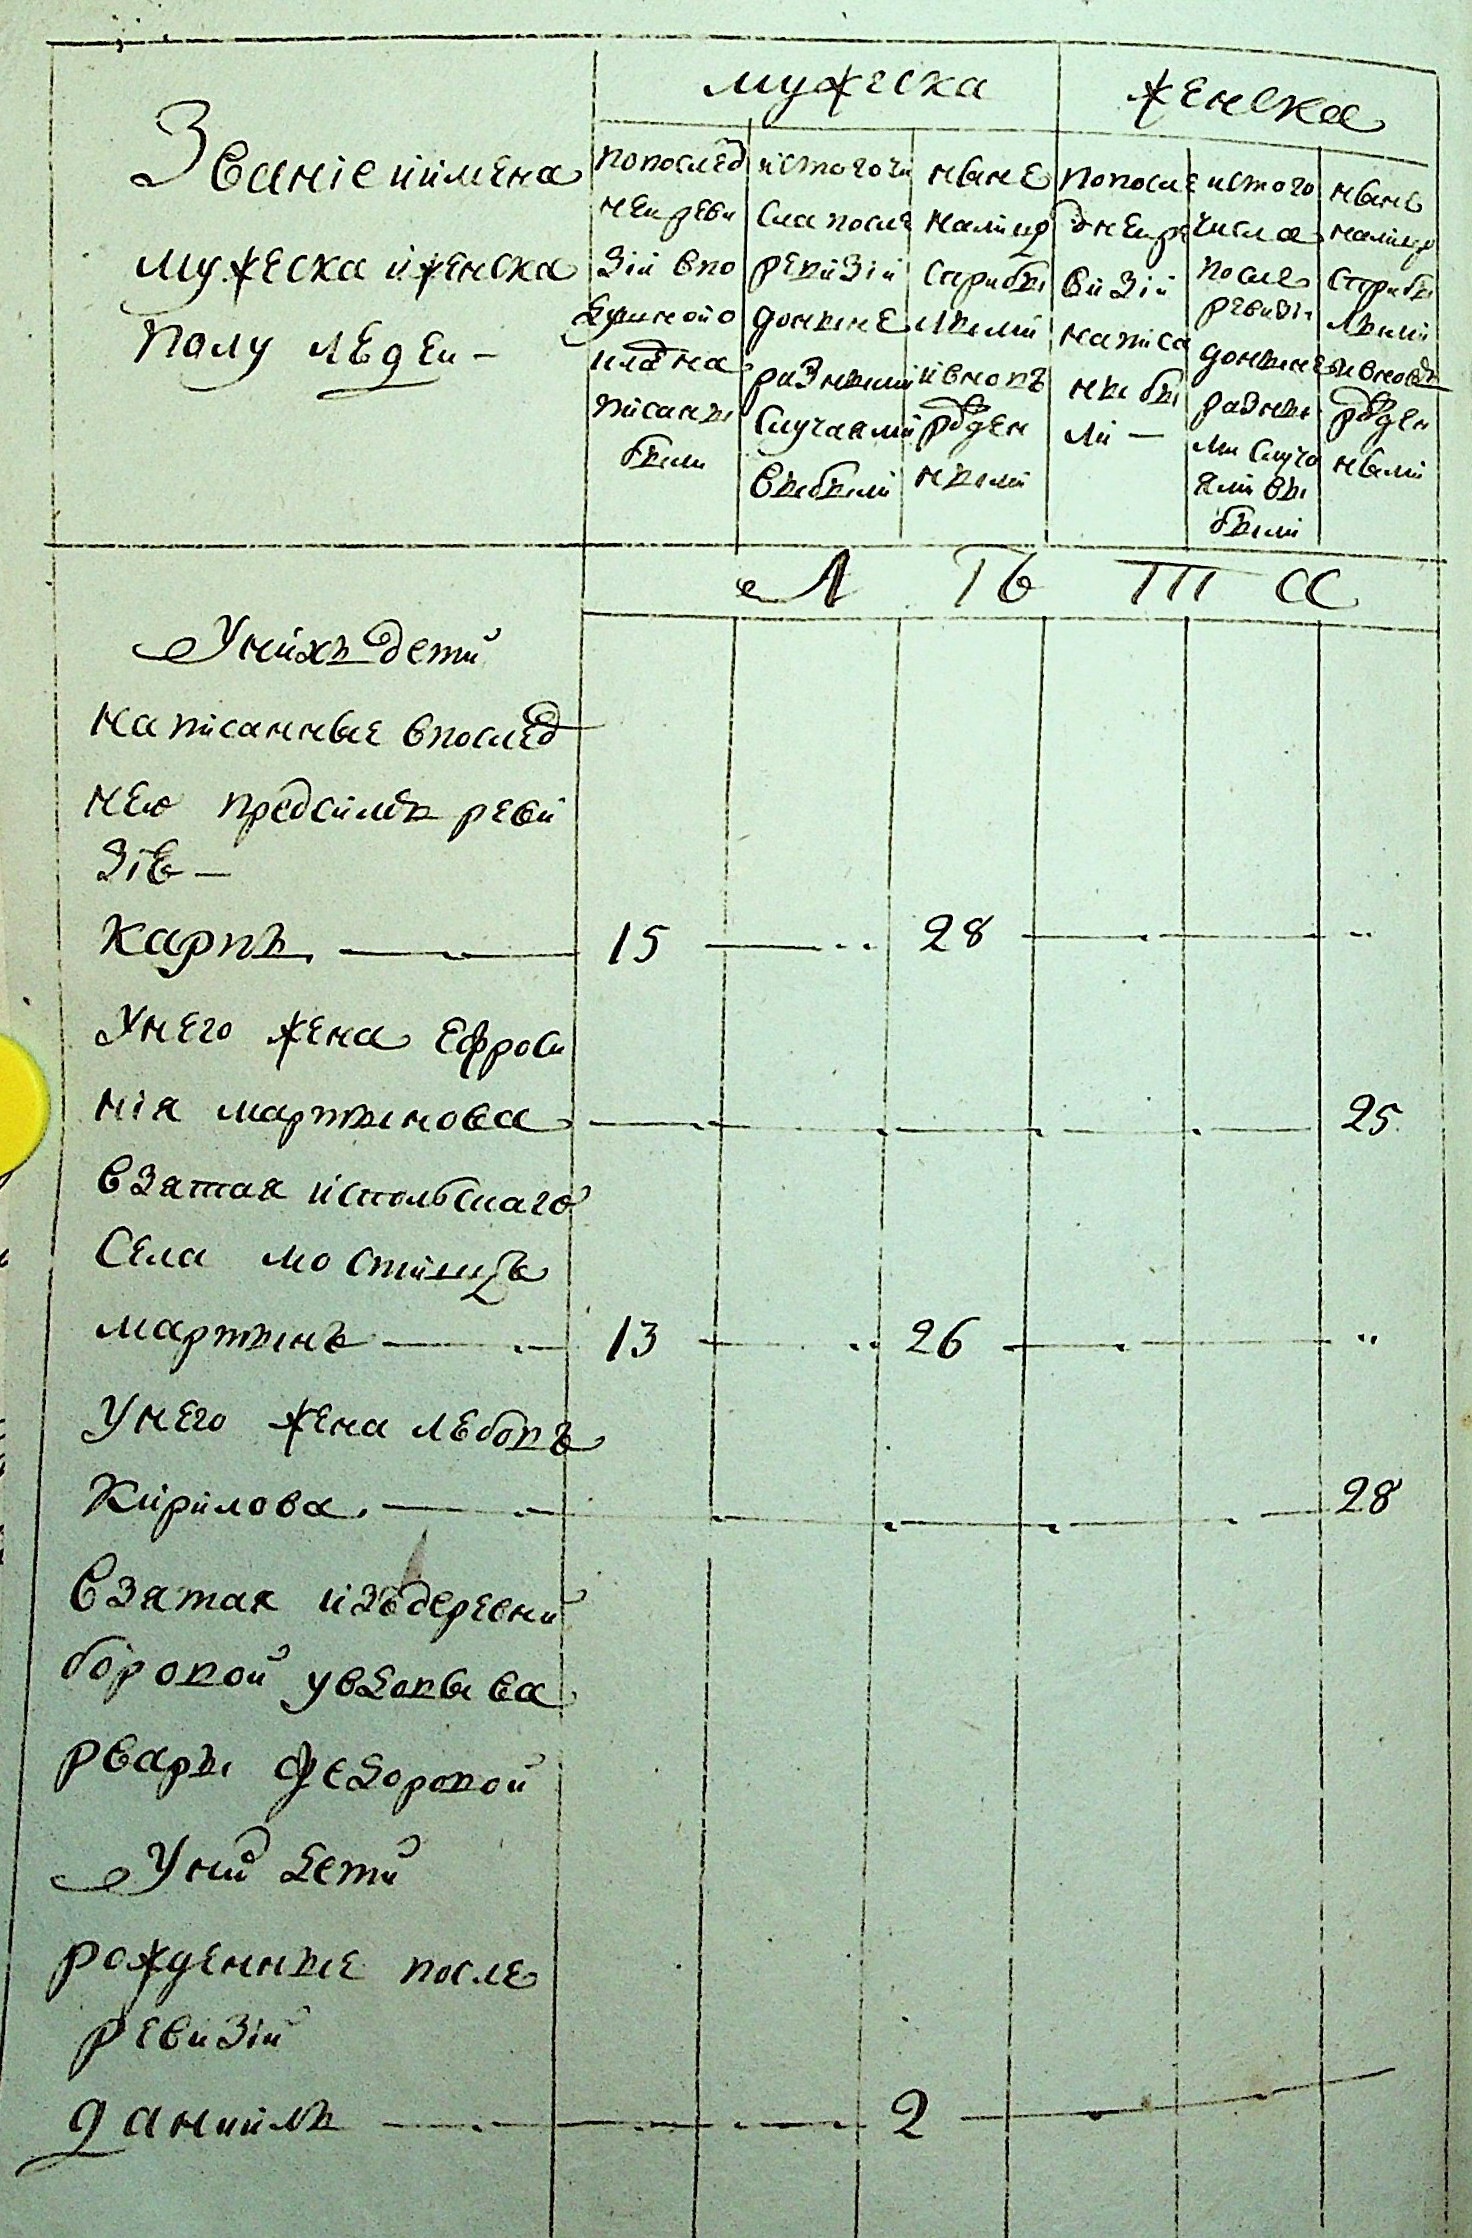 мужеска женска
Званіе и имена
мужеска и женска
полу людей —
по послѣд
ней реви
зіи в по
душной о
клад на
писаны
были
ис того чи
сла после
ревизіи
до ныне
разными
случаями
выбыли
ныне
на лицо
с прибы
лыми
и вновь
рожден
ными
по после
дней ре
визіи
написа
ны бы
ли —
ис того
числа
после
ревизіи
до ныне
разны
ми случа
ями вы
были
ныне
на лицо
с прибы
лыми
и вновь
рожден
ными
Л Ть Т СС
У них дети
написанные в послед
нею пред симъ реви
зію —
Карпъ 15 28
У него жена Ефроси
нія мартынова 25
взятая ис польскаго
села мостищъ
мартынъ 13 26
У него жена любовь
Кирилова 28
взятая из деревни
боровой у вдовы ва
рвары Федоровой
У них дети
рожденные после
ревизіи
даниилъ 2